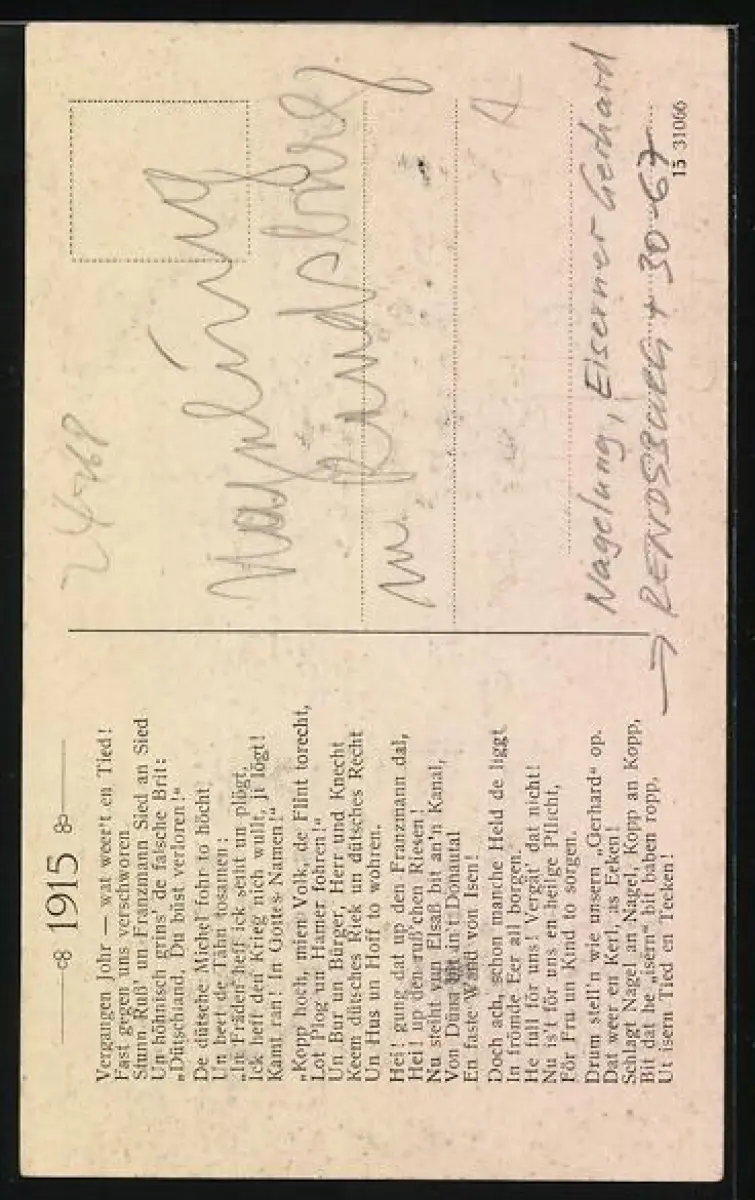 1915
Vergangen Johr — wat weer't en Tied!
Fast gegen uns verschworen
Stunn Ruß' un Franzmann Sied an Sied
Un höhnisch grins' de falsche Brit:
„Dütschland, Du büst verloren!"
De dütsche Michel fohr to höcht
Un beet de Tähn tosamen:
„In Fräden heff ick seiht un plögt,
Ick heff den Krieg nich wullt, ji lögt!
Kamt ran! In Gottes Namen!"
„Kopp hoch, mien Volk, de Flint torecht,
Lot Plog un Hamer fohren!"
Un Bur un Bürger, Herr und Knecht
Keem dütsches Riek un dütsches Recht
Un Hus un Hoff to wohren.
Hei! gung dat up den Franzmann dal,
Hei! up den ruß'chen Riesen!
Nu steiht vun Elsaß bit an'n Kanal,
Von Düna bit in't Donautal
En faste Wand von Isen!
Doch ach, schon manche Held de liggt
In frömde Eer all borgen.
He full för uns! Vergät' dat nicht!
Nu is't för uns en heilge Pflicht,
För Fru un Kind to sorgen.
Drum stell'n wie unsern „Gerhard" op.
Dat weer en Kerl, as Eeken!
Schlagt Nagel an Nagel, Kopp an Kopp,
Bit dat he „isern" bit baben ropp,
Ut isern Tied en Teeken!
Nagelung
Rendsburg
Nagelung, Eiserner Gerhard
→ RENDSBURG + 30-67
15 31066